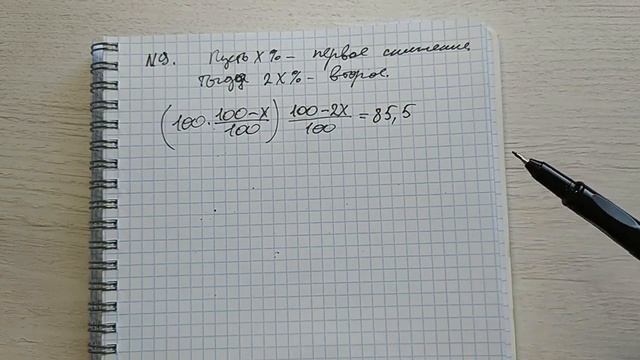 №9. Пусть x % – первое снижение.
тогда 2x % – второе.
(100 · \frac{100-x}{100}) \frac{100-2x}{100} = 85,5